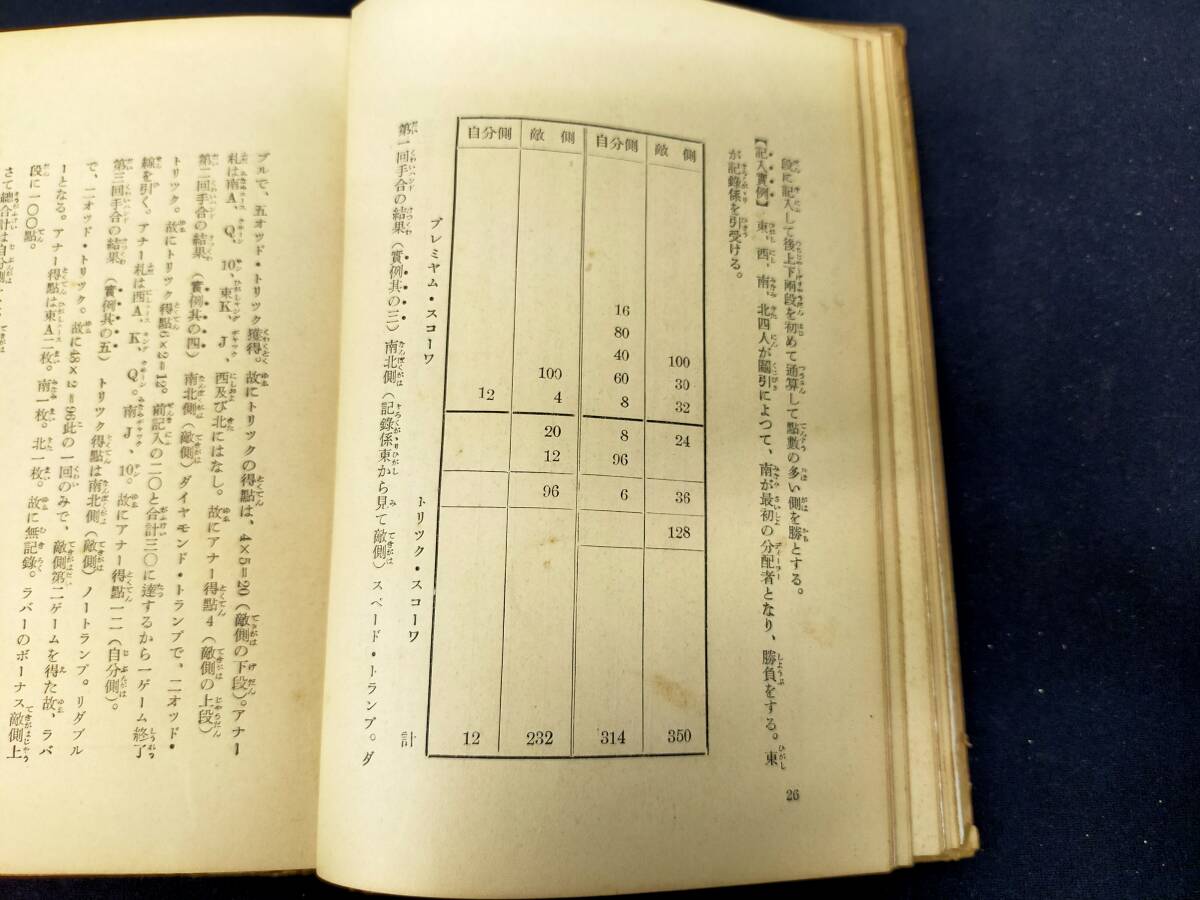 段に記入して後上下兩段を初めて通算して點數の多い側を勝とする。
【記入實例】 東、西、南、北四人が鬮引によつて、南が最初の分配者となり、勝負をする。東
が記錄係を引受ける。
自分側 敵 側 自分側 敵 側
16
80
40 100
100 60 30
12 4 8 32
20 8 24
12 96
96 6 36
128
12 232 314 350
プレミヤム・スコーワ
トリツク・スコーワ
計
第一回手合の結果（實例其の三）南北側（記錄係東から見て敵側）スペード・トランプ。ダ
26
ブルで、五オッド・トリック獲得。故にトリツクの得點は、4×5=20（敵側の下段）。アナー
札は南A、Q、10、東K、J、西及び北にはなし。故にアナー得點4（敵側の上段）
第二回手合の結果（實例其の四）南北側（敵側）ダイヤモンド・トランプで、二オッド・
トリツク。故にトリツク得點6×2=12。前記入の二〇と合計三〇に達するから一ゲーム終了
線を引く。アナー札は西A、K、Q。南J、10。故にアナー得點一二（自分側）。
第三回手合の結果（實例其の五）トリツク得點は南北側（敵側）ノートランプ。リダブル
で、二オッド・トリツク。故に48×2=96此の一回のみで、敵側第二ゲームを得た故、ラバ
ーとなる。アナー得點は東A二枚。南一枚。北一枚。故に無記錄。ラバーのボーナス敵側上
段に一〇〇點。
さて總合計は自分側